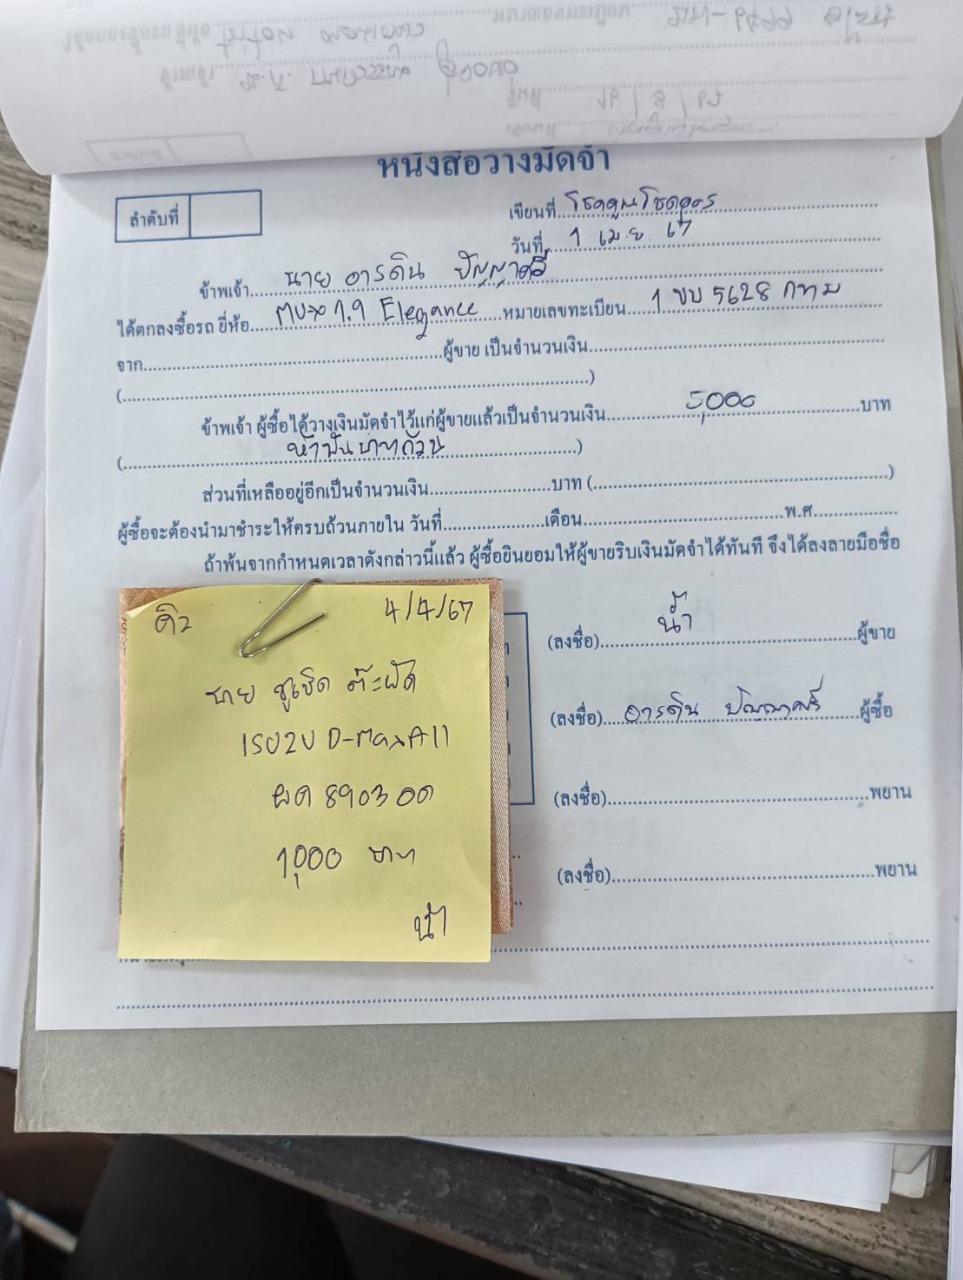 หนังสือวางมัดจำ
ลำดับที่
เขียนที่ โชคคูณโชคถาวร
วันที่ 1 เม.ย. 67
ข้าพเจ้า นาย อารดิน ปัญญาศรี
ได้ตกลงซื้อรถ ยี่ห้อ mux 1.9 Elegance หมายเลขทะเบียน 1 ขบ 5628 กทม
จาก ผู้ขาย เป็นจำนวนเงิน
( )
ข้าพเจ้า ผู้ซื้อได้วางเงินมัดจำไว้แก่ผู้ขายแล้วเป็นจำนวนเงิน 5,000 บาท
( ห้าพันบาทถ้วน )
ส่วนที่เหลืออยู่อีกเป็นจำนวนเงิน บาท ( )
ผู้ซื้อจะต้องนำมาชำระให้ครบถ้วนภายใน วันที่ เดือน พ.ศ.
ถ้าพ้นจากกำหนดเวลาดังกล่าวนี้แล้ว ผู้ซื้อยินยอมให้ผู้ขายริบเงินมัดจำได้ทันที จึงได้ลงลายมือชื่อ
(ลงชื่อ) น้ำ ผู้ขาย
(ลงชื่อ) อารดิน ปัญญาศรี ผู้ซื้อ
(ลงชื่อ) พยาน
(ลงชื่อ) พยาน
4/4/67
นาย ชูเชิด
ISUZU D-Max All
ผต 8903
1,000 บาท
น้ำ